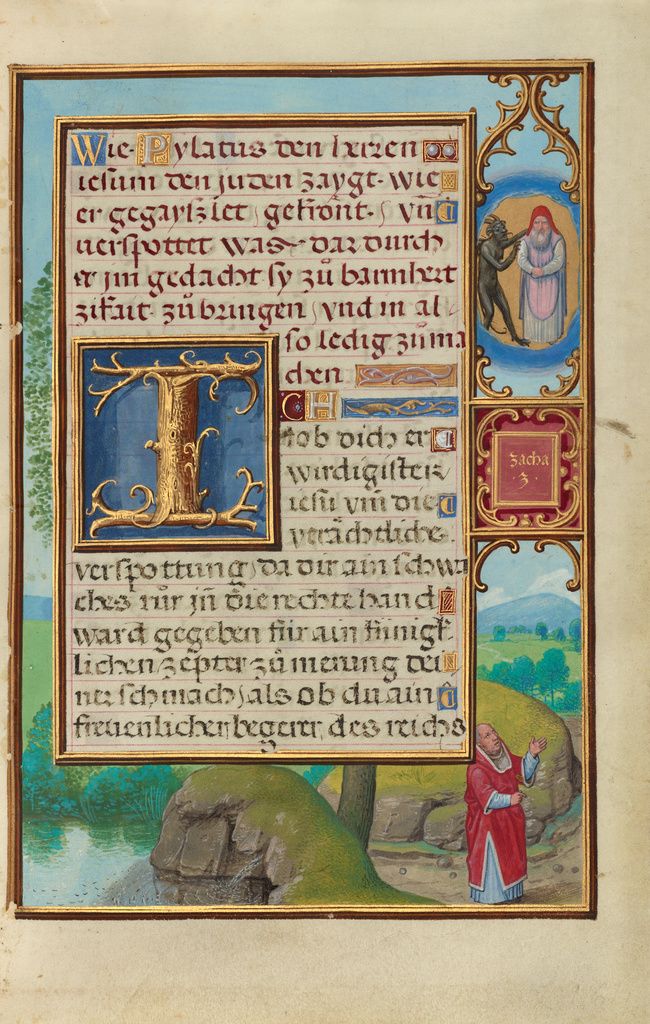 Wie Pylatus den herren
iesum den juden zaygt. wie
er gegayszlet, gekrönt, vn̄
verspottet was dar durch
er jm gedacht sy zů barmhert
zikait zů bringen, vnd in al
so ledig zů ma
chen
ICH
lob dich er
wirdigister
iesu vm̄ die
verächtliche
verspottung, da dir ain schwa
ches rür jn die rechte hand
ward gegeben für ain künigk
lichen zepter zů merung dei
ner schmach, als ob du ain
freuenlicher begerer des reichs
zacha
3